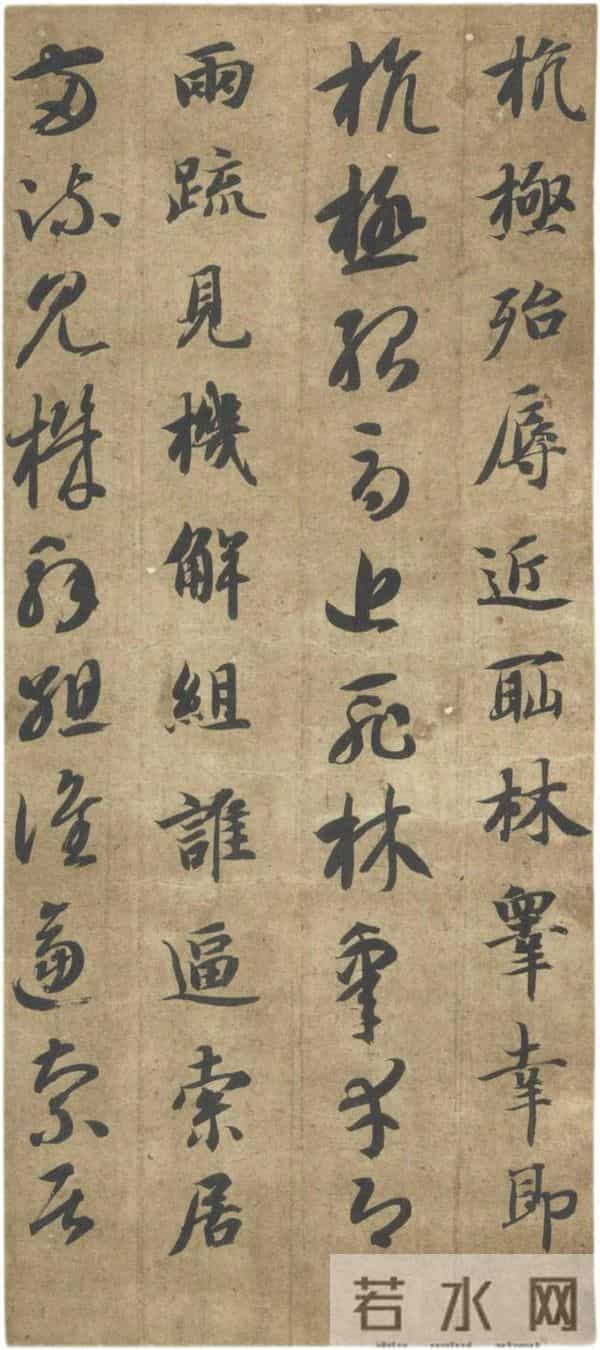 杭極殆辱近耻林皋幸即
杭極殆辱近耻林皋幸即
兩疏見機解組誰逼索居
兩疏見機解組誰逼索居
若水网